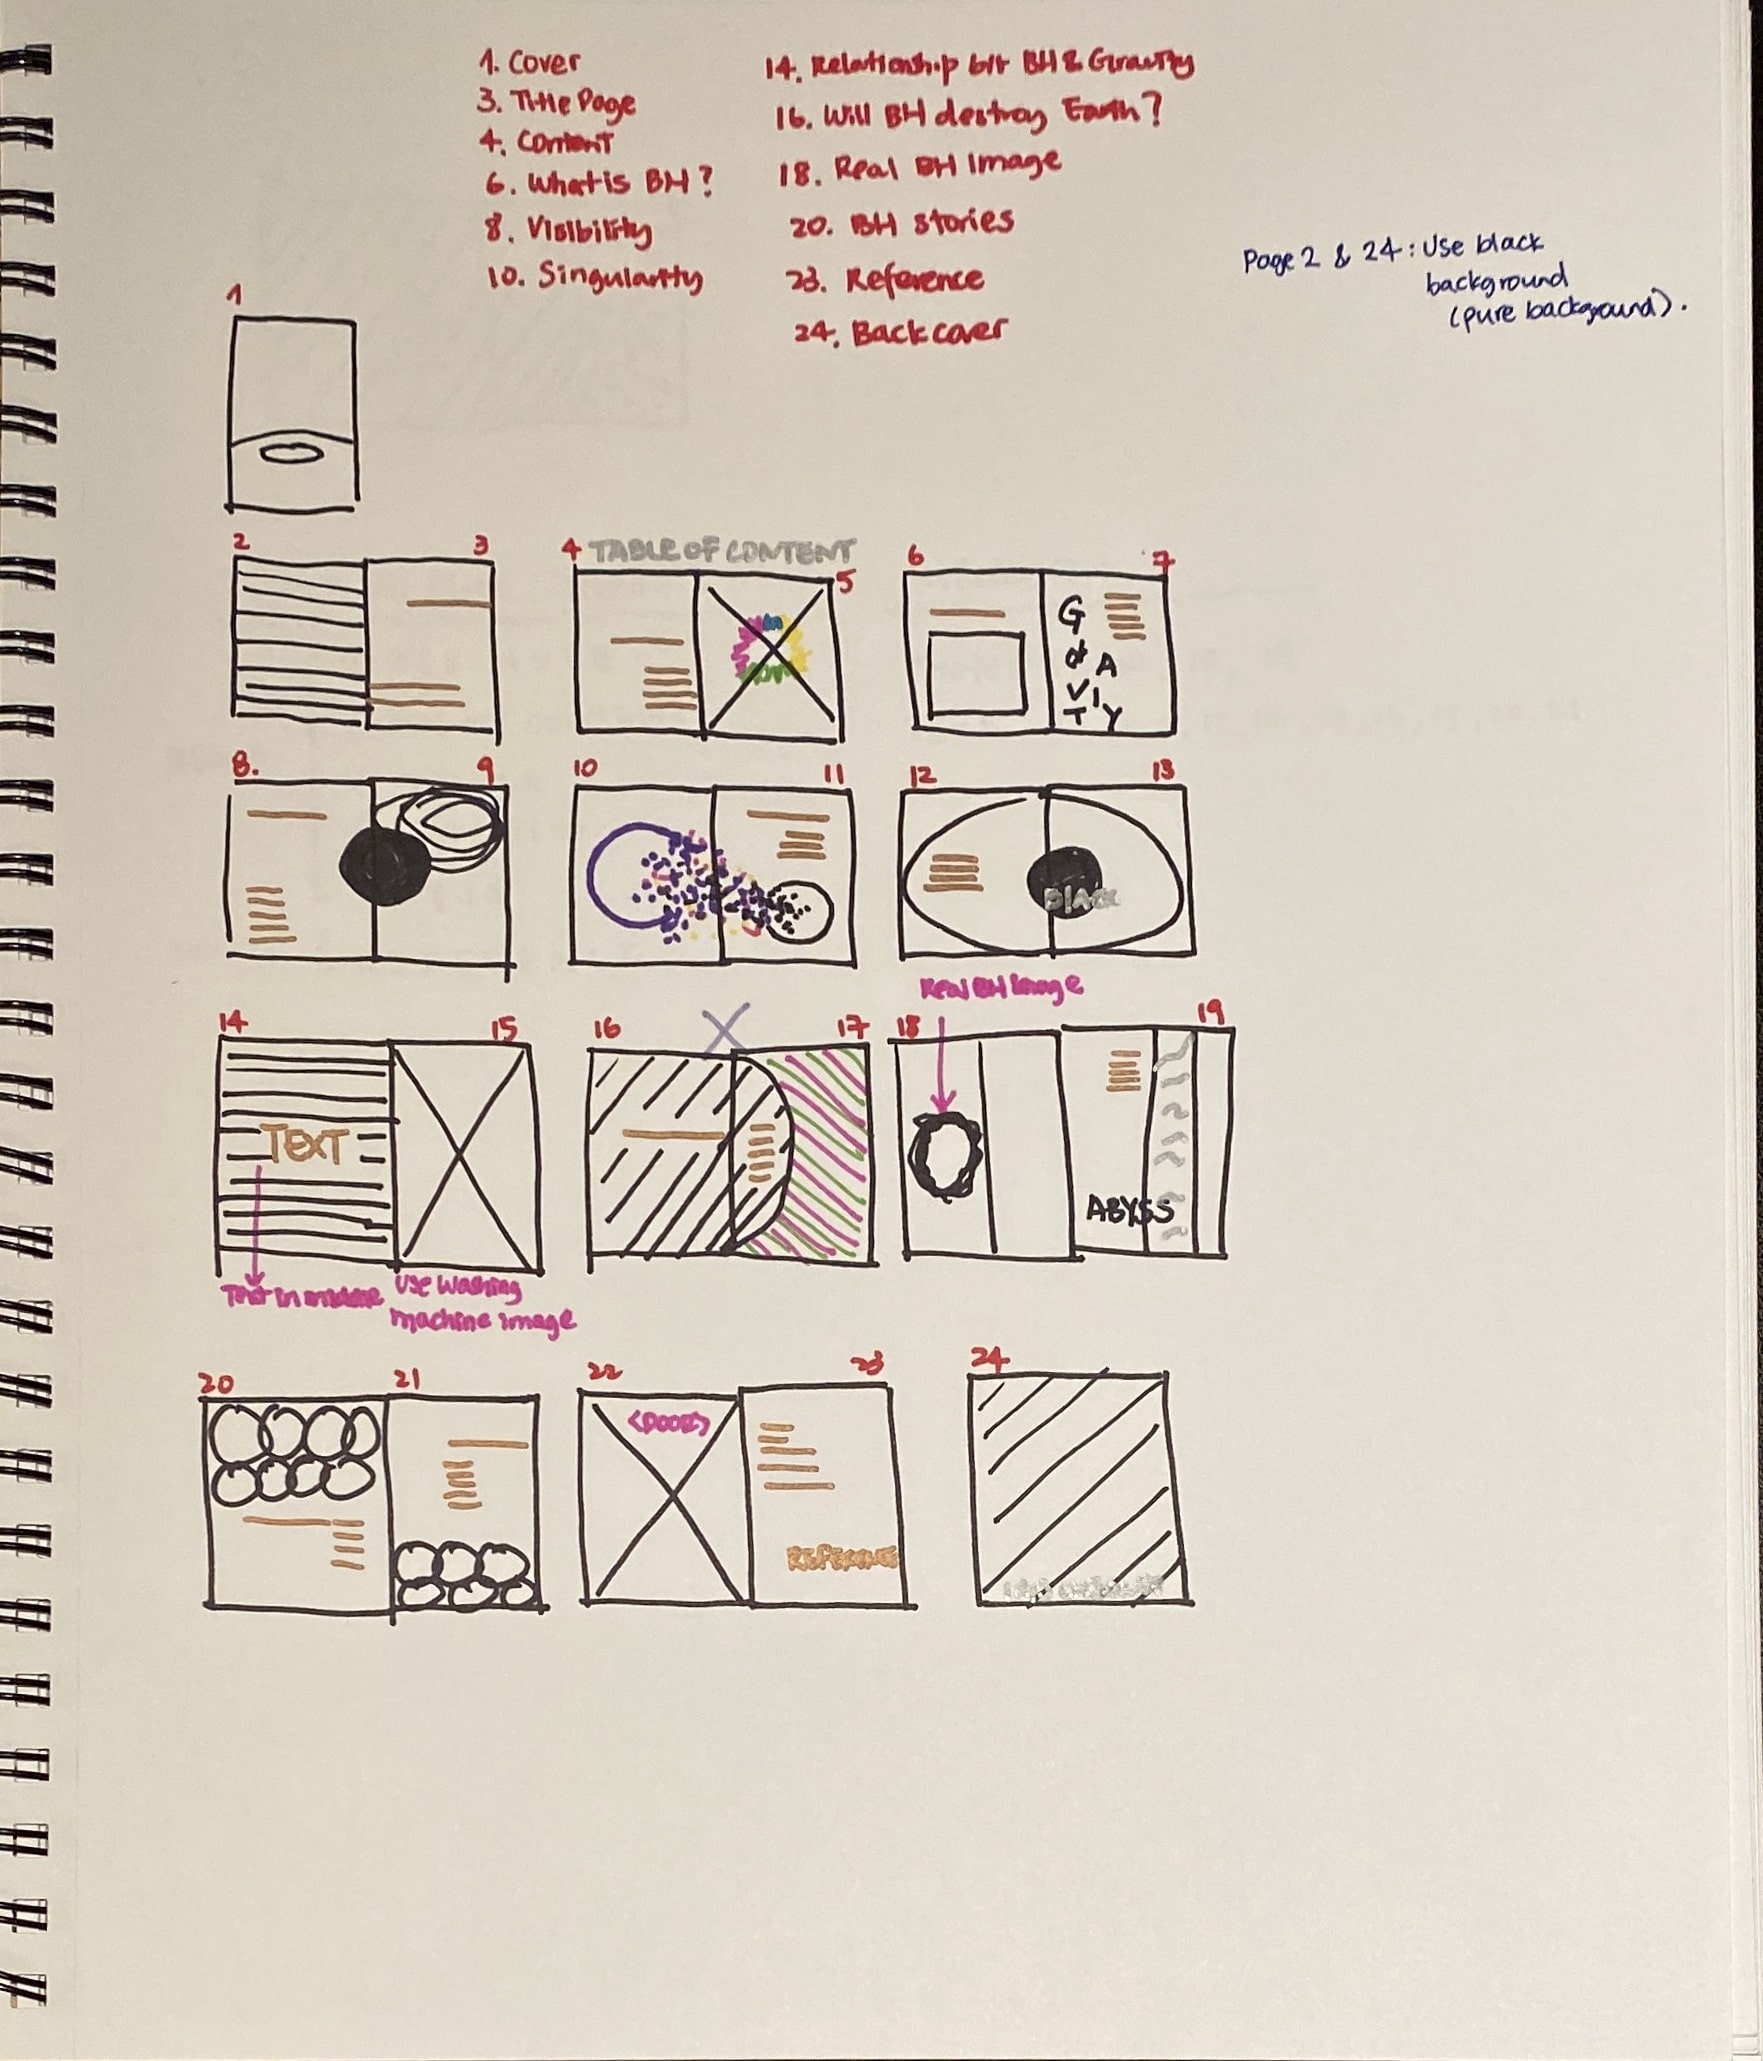 1. Cover
3. Title Page
4. Content
6. What is BH?
8. Visibility
10. Singularity
14. Relationship b/t BH & Gravity
16. Will BH destroy Earth?
18. Real BH Image
20. BH stories
23. Reference
24. Back cover
Page 2 & 24: Use black
background
(pure background).
1
2 3
4 TABLE OF CONTENT
5
6 7
G
R A
V I
T Y
8. 9
10 11
12 13
Black
Real BH Image
14 15
TEXT
Text in middle
Use Washing
machine image
16 17
18 19
ABYSS
20 21
22 23
<DOOR>
REFERENCE
24